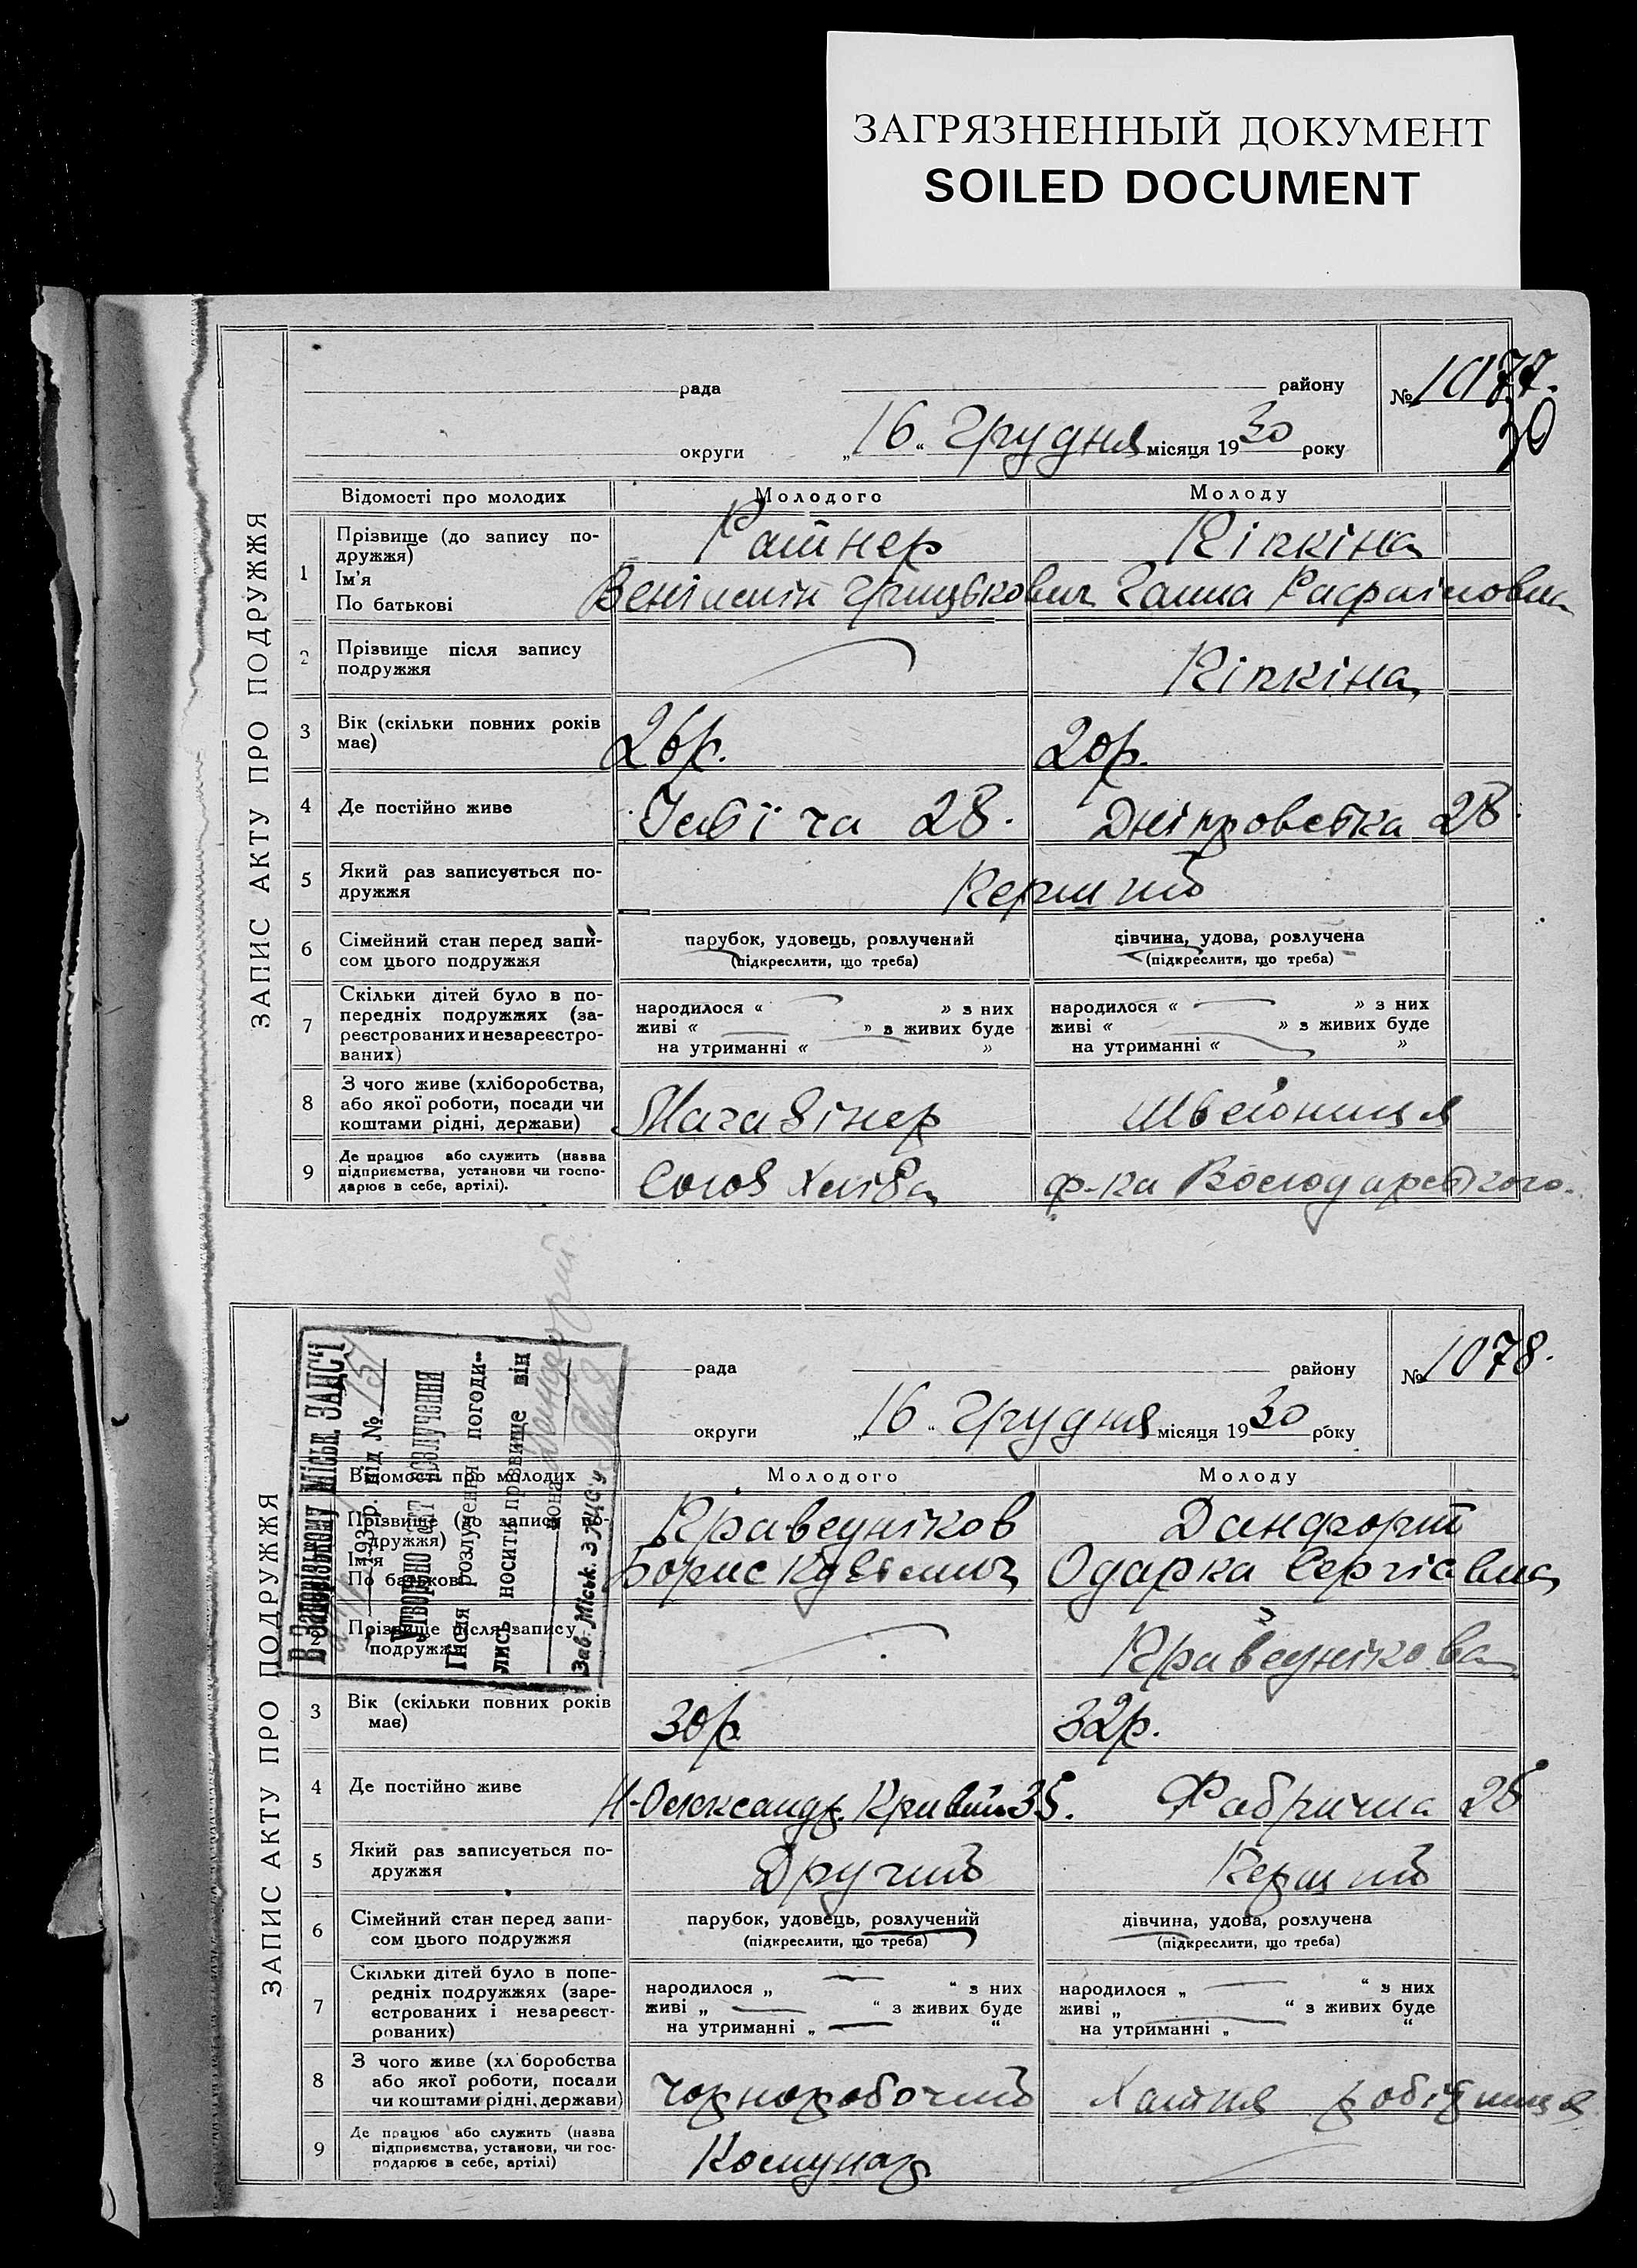 ЗАГРЯЗНЕННЫЙ ДОКУМЕНТ
SOILED DOCUMENT
ЗАПИС АКТУ ПРО ПОДРУЖЖЯ
рада району № 1077.
30
округи „16“ Грудня місяця 1930 року
Відомості про молодих Молодого Молоду
1 Прізвище (до запису по-
дружжя)
Ім'я
По батькові
Ратнер Кіпкіна
Веніямін Грицькович Ганна Рафаіловна
2 Прізвище після запису
подружжя
Кіпкіна
3 Вік (скільки повних років
має)
26р. 20р.
4 Де постійно живе
28. Дніпровська 28
5 Який раз записується по-
дружжя
Перший
6 Сімейний стан перед запи-
сом цього подружжя
парубок, удовець, розлучений дівчина, удова, розлучена
(підкреслити, що треба) (підкреслити, що треба)
7 Скільки дітей було в по-
передніх подружжях (за-
реєстрованих и незареєстро-
ваних)
народилося « » з них народилося « » з них
живі « » з живих буде живі « » з живих буде
на утриманні « » на утриманні « »
8 З чого живе (хліборобства,
або якої роботи, посади чи
коштами рідні, держави)
Магазінер Швейниця
9 Де працює або служить (назва
підприємства, установи чи госпо-
дарює в себе, артілі).
Союз Хліба ф-ка Володарського
ЗАПИС АКТУ ПРО ПОДРУЖЖЯ
В Запорізькому Міськ. ЗАГСі
193 р. під № 151
Утворено акт розлучення
Після розлучення погоди-
лись носити прізвище він
вона Данфорт
Зав. Міськ. ЗАГС'у
рада району № 1078.
округи „16“ Грудня місяця 1930 року
Відомості про молодих Молодого Молоду
Прізвище (до запису по-
дружжя)
Ім'я
По батькові
Праведніков Данфорт
Борис Кузьмич Одарка Сергієвна
2 Прізвище після запису
подружжя
Праведнікова
3 Вік (скільки повних років
має)
30р 32р.
4 Де постійно живе
Н-Олександр. 35. Фабрична 25
5 Який раз записується по-
дружжя
Другий Перший
6 Сімейний стан перед запи-
сом цього подружжя
парубок, удовець, розлучений дівчина, удова, розлучена
(підкреслити, що треба) (підкреслити, що треба)
7 Скільки дітей було в попе-
редніх подружжях (заре-
єстрованих і незареєст-
рованих)
народилося „ “ з них народилося „ “ з них
живі „ “ з живих буде живі „ “ з живих буде
на утриманні „ “ на утриманні „ “
8 З чого живе (хл боробства
або якої роботи, посади
чи коштами рідні, держави)
Чорноробочий Хатня робітниця
9 Де працює або служить (назва
підприємства, установи, чи гос-
подарює в себе, артілі)
Комунар